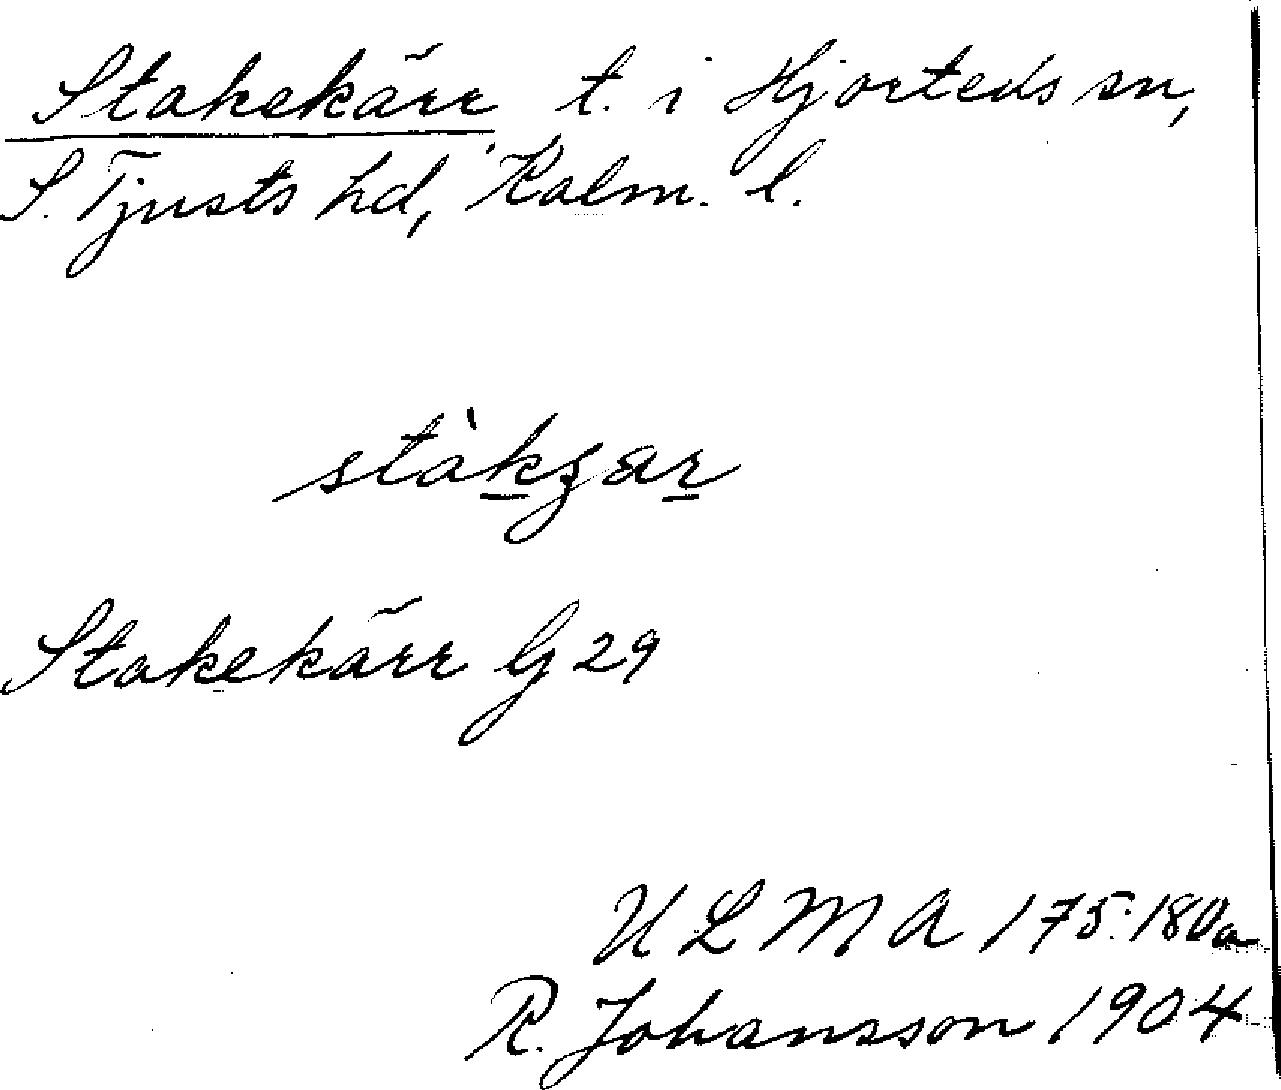 Stakekärr t. i Hjorteds sn,
S. Tjusts hd, Kalm. l.
Stakekärr G 29
ULMA 175:180a
R. Johansson 1904